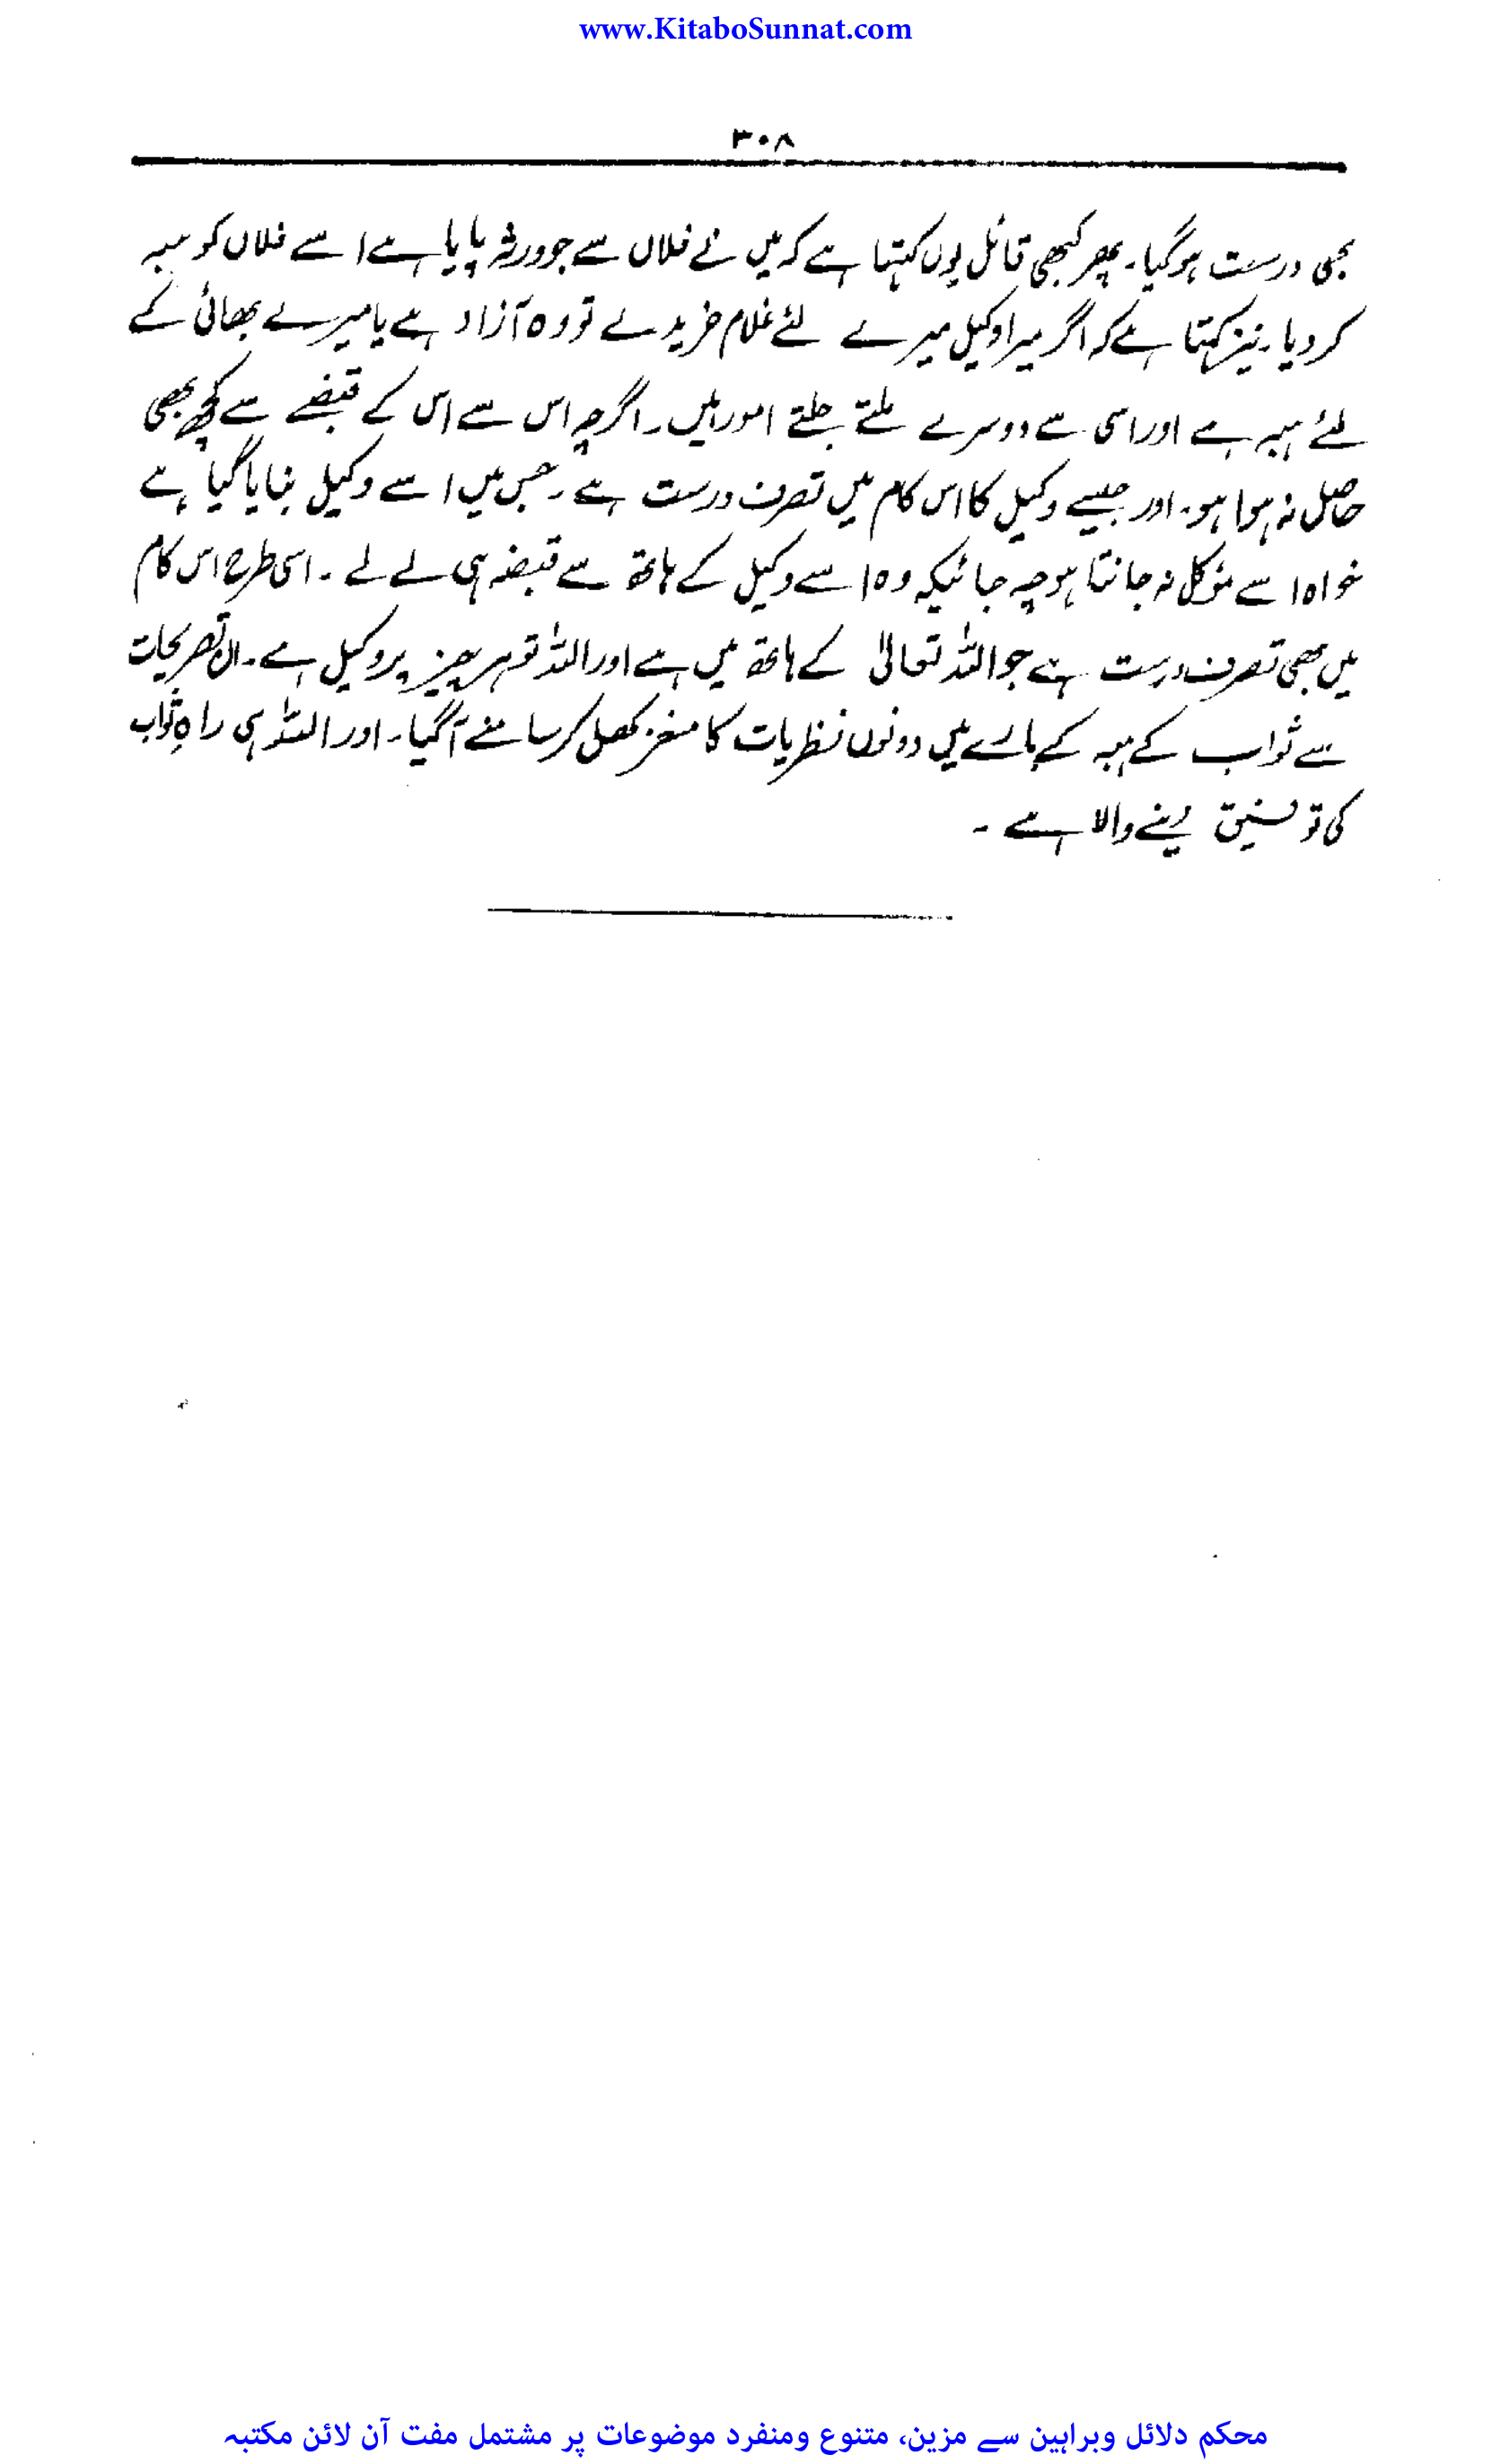 www.KitaboSunnat.com
۳۰۸
بھی درست ہوگیا۔ پھر کبھی قائل یوں کہتا ہے کہ میں نے فلاں سے جو ورثہ پایا ہے اسے فلاں کو ہبہ
کر دیا۔ نیز کہتا ہے کہ اگر میرا وکیل میرے لئے غلام خریدے تو وہ آزاد ہے یا میرے بھائی کے
لئے ہبہ ہے اور اسی سے دوسرے ملتے جلتے امور ہیں۔ اگرچہ اس سے اس کے قبضے سے کچھ بھی
حاصل نہ ہوا ہو۔ اور جیسے وکیل کا اس کام میں تصرف درست ہے۔ جس میں اسے وکیل بنایا گیا ہے
خواہ اسے مؤکل نہ جانتا ہو چہ جائیکہ وہ اسے وکیل کے ہاتھ سے قبضہ ہی لے لے۔ اسی طرح اس کام
میں بھی تصرف درست ہے جو اللہ تعالیٰ کے ہاتھ میں ہے اور اللہ تو ہر چیز پر وکیل ہے۔ ان تصریحات
سے ثواب کے ہبہ کے بارے میں دونوں نظریات کا مغز کھل کر سامنے آگیا۔ اور اللہ ہی راہِ ثواب
کی توفیق دینے والا ہے۔
محکم دلائل وبراہین سے مزین، متنوع ومنفرد موضوعات پر مشتمل مفت آن لائن مکتبہ